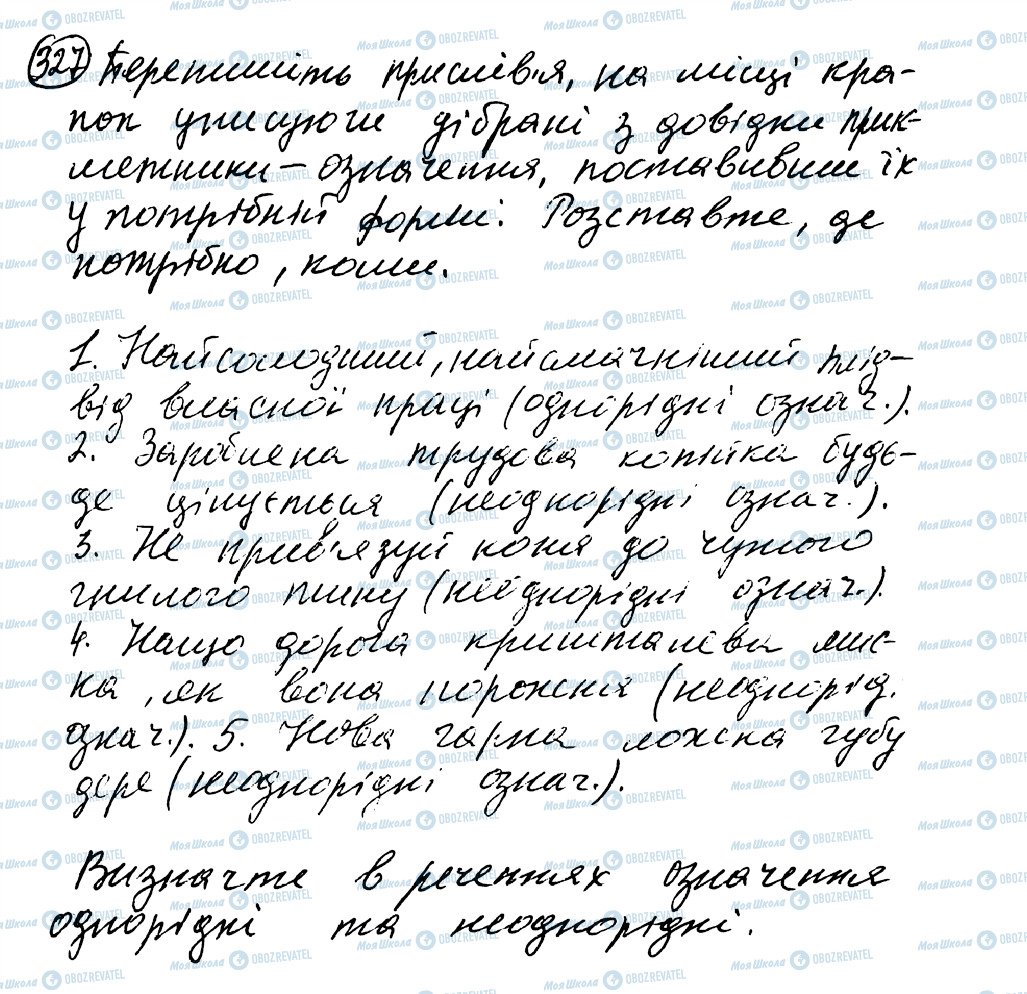 327 Перепишіть прислів'я, на місці кра-
пок уписуючи дібрані з довідки прик-
метники - означення, поставивши їх
у потрібній формі. Розставте, де
потрібно, коми.
1. Найсолодший, найсмачніший плід-
від власної праці (однорідні означ.).
2. Зароблена трудова копійка будь-
де цінується (неоднорідні означ.).
3. Не прив'язуй коня до чужого
гнилого тину (неоднорідні означ.).
4. Нащо дорога кришталева мис-
ка, як вона порожня (неоднорід.
означ.). 5. Нова гарна ложка губу
дере (неоднорідні означ.).
Визначте в реченнях означення
однорідні та неоднорідні.